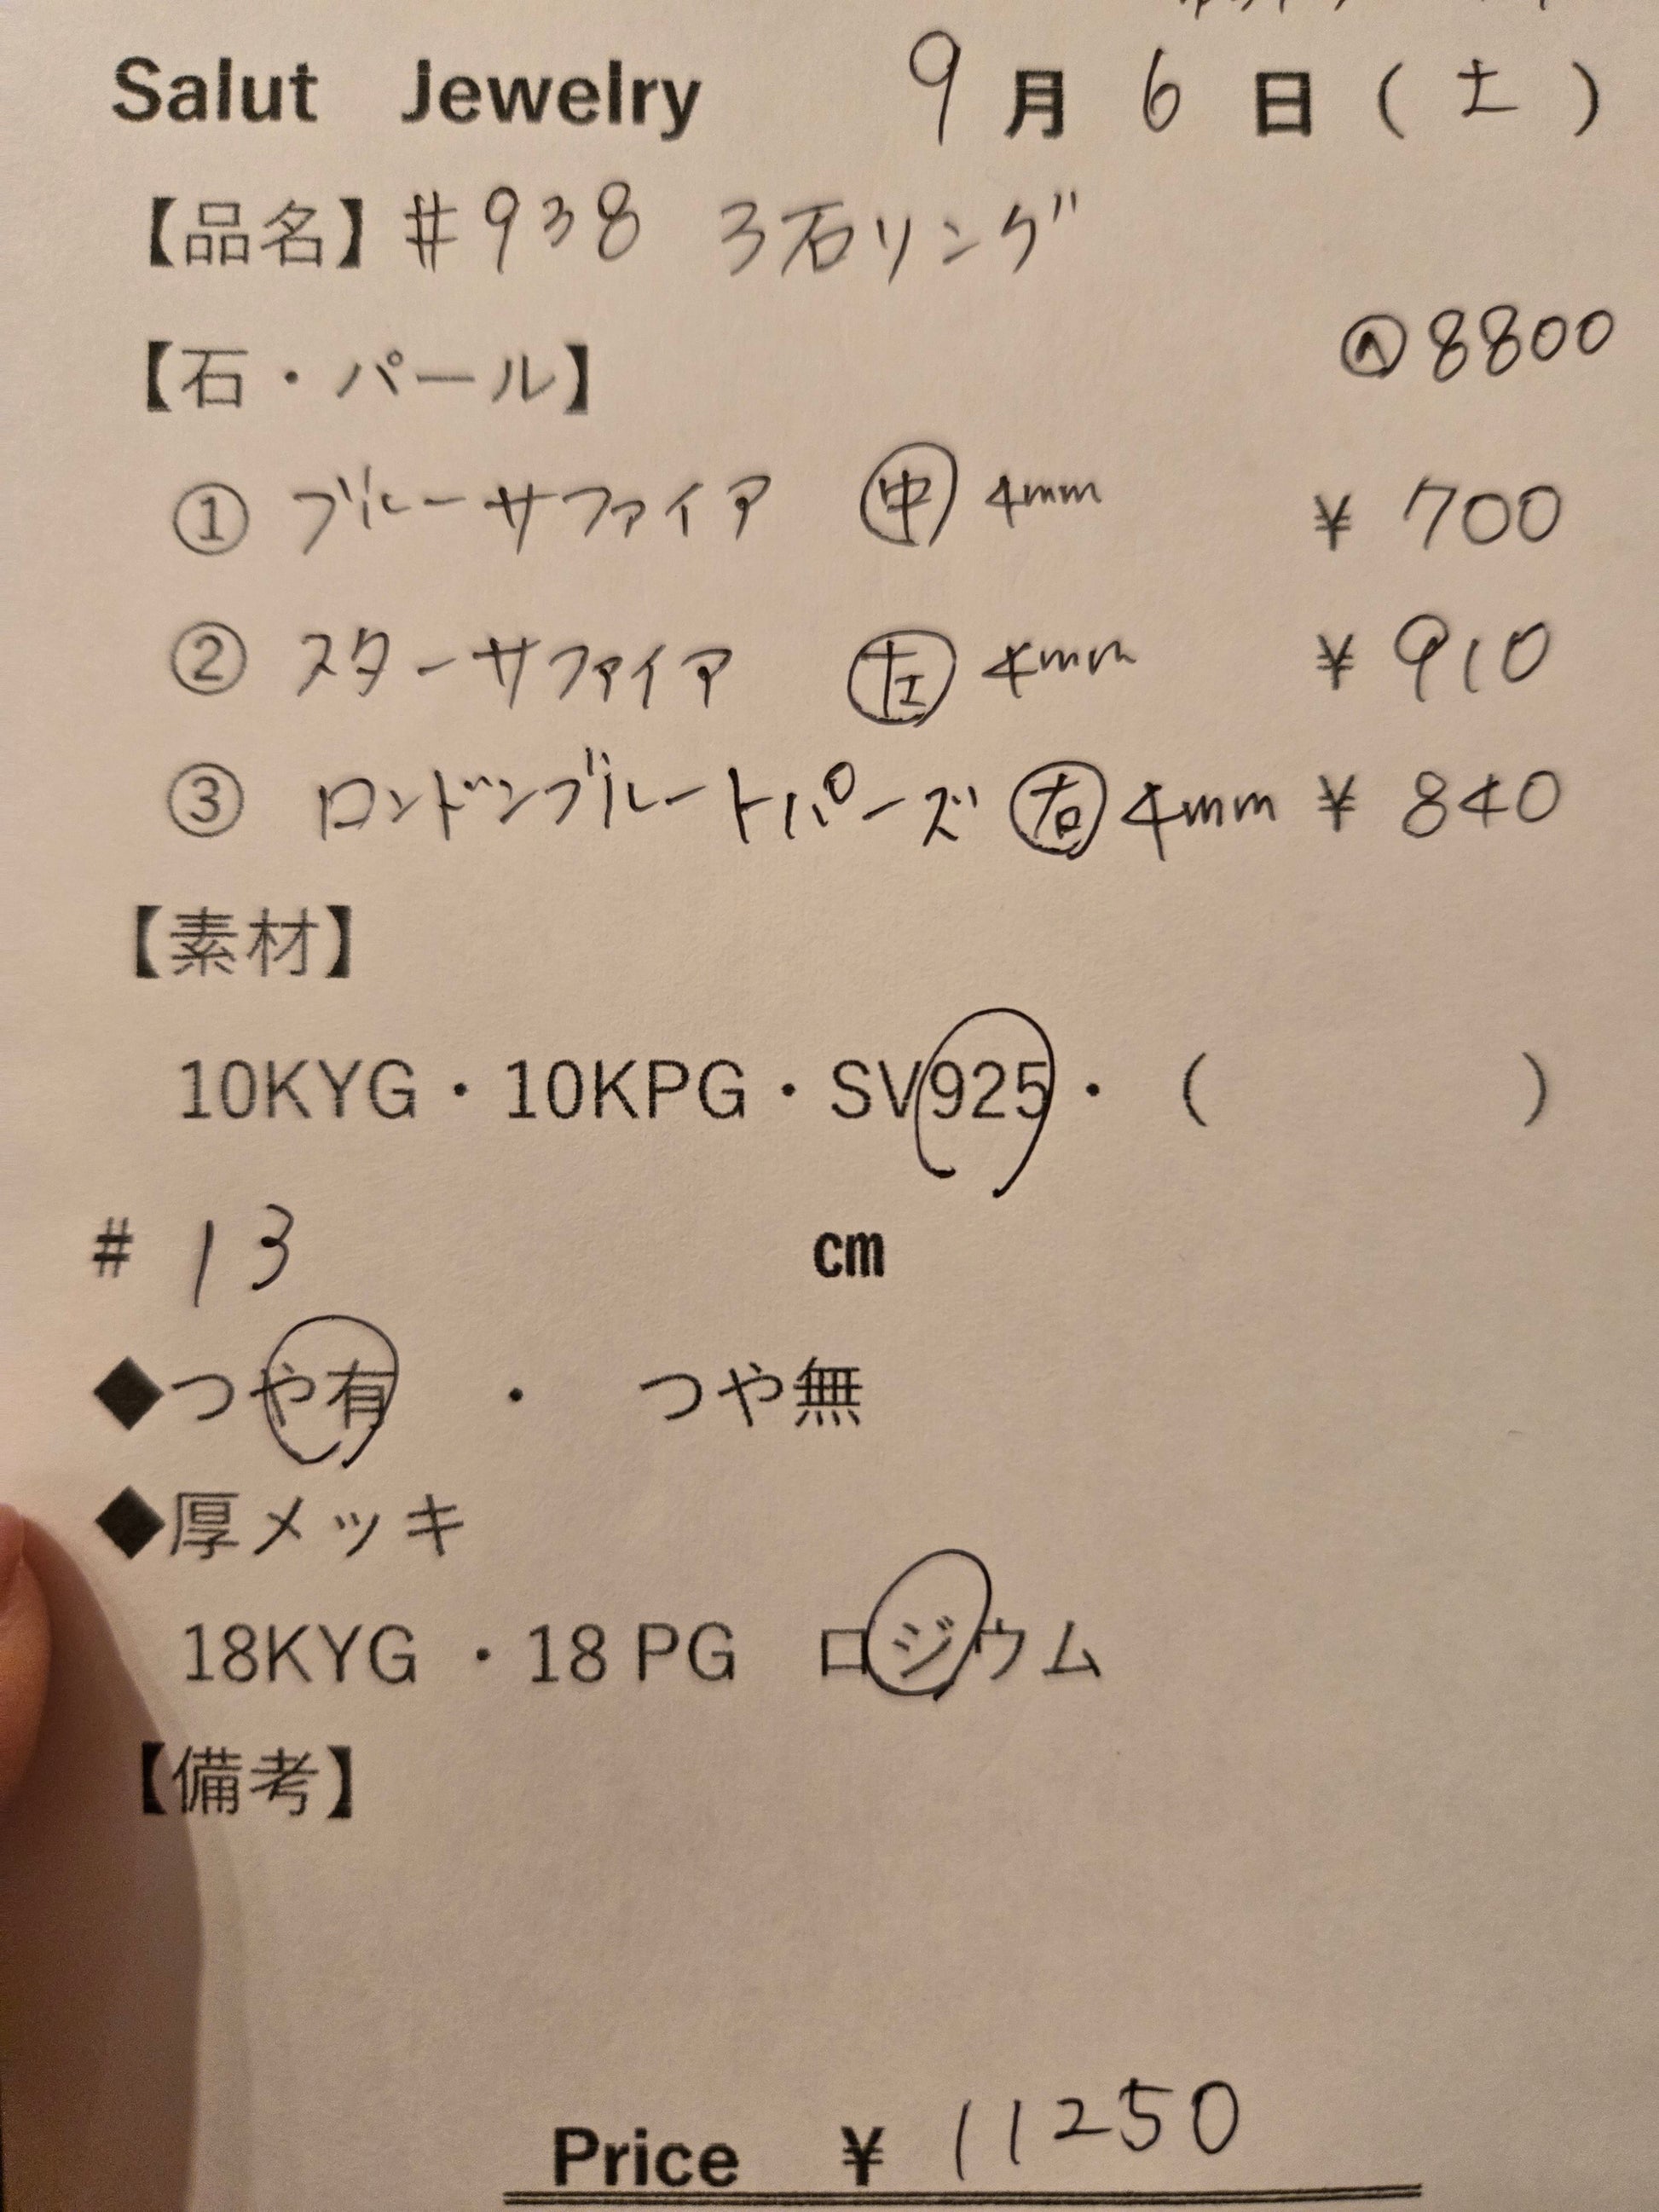 Salut Jewelry 9月6日(土)
【品名】#938 3石リング
@8800
【石・パール】
① ブルーサファイア ㊥ 4mm ¥700
② スターサファイア ㊧ 4mm ¥910
③ ロンドンブルートパーズ ㊨ 4mm ¥840
【素材】
10KYG・10KPG・SV925・( )
# 13 cm
◆つや有 ・ つや無
◆厚メッキ
18KYG ・18 PG ロジウム
【備考】
Price ¥ 11250